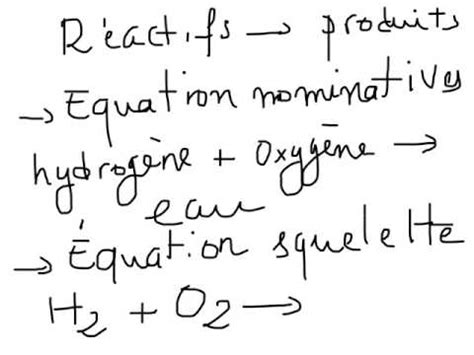 Réactifs → produits
→ Equation nominatives
hydrogène + Oxygène →
eau
→ Équation squelette
H₂ + O₂ →